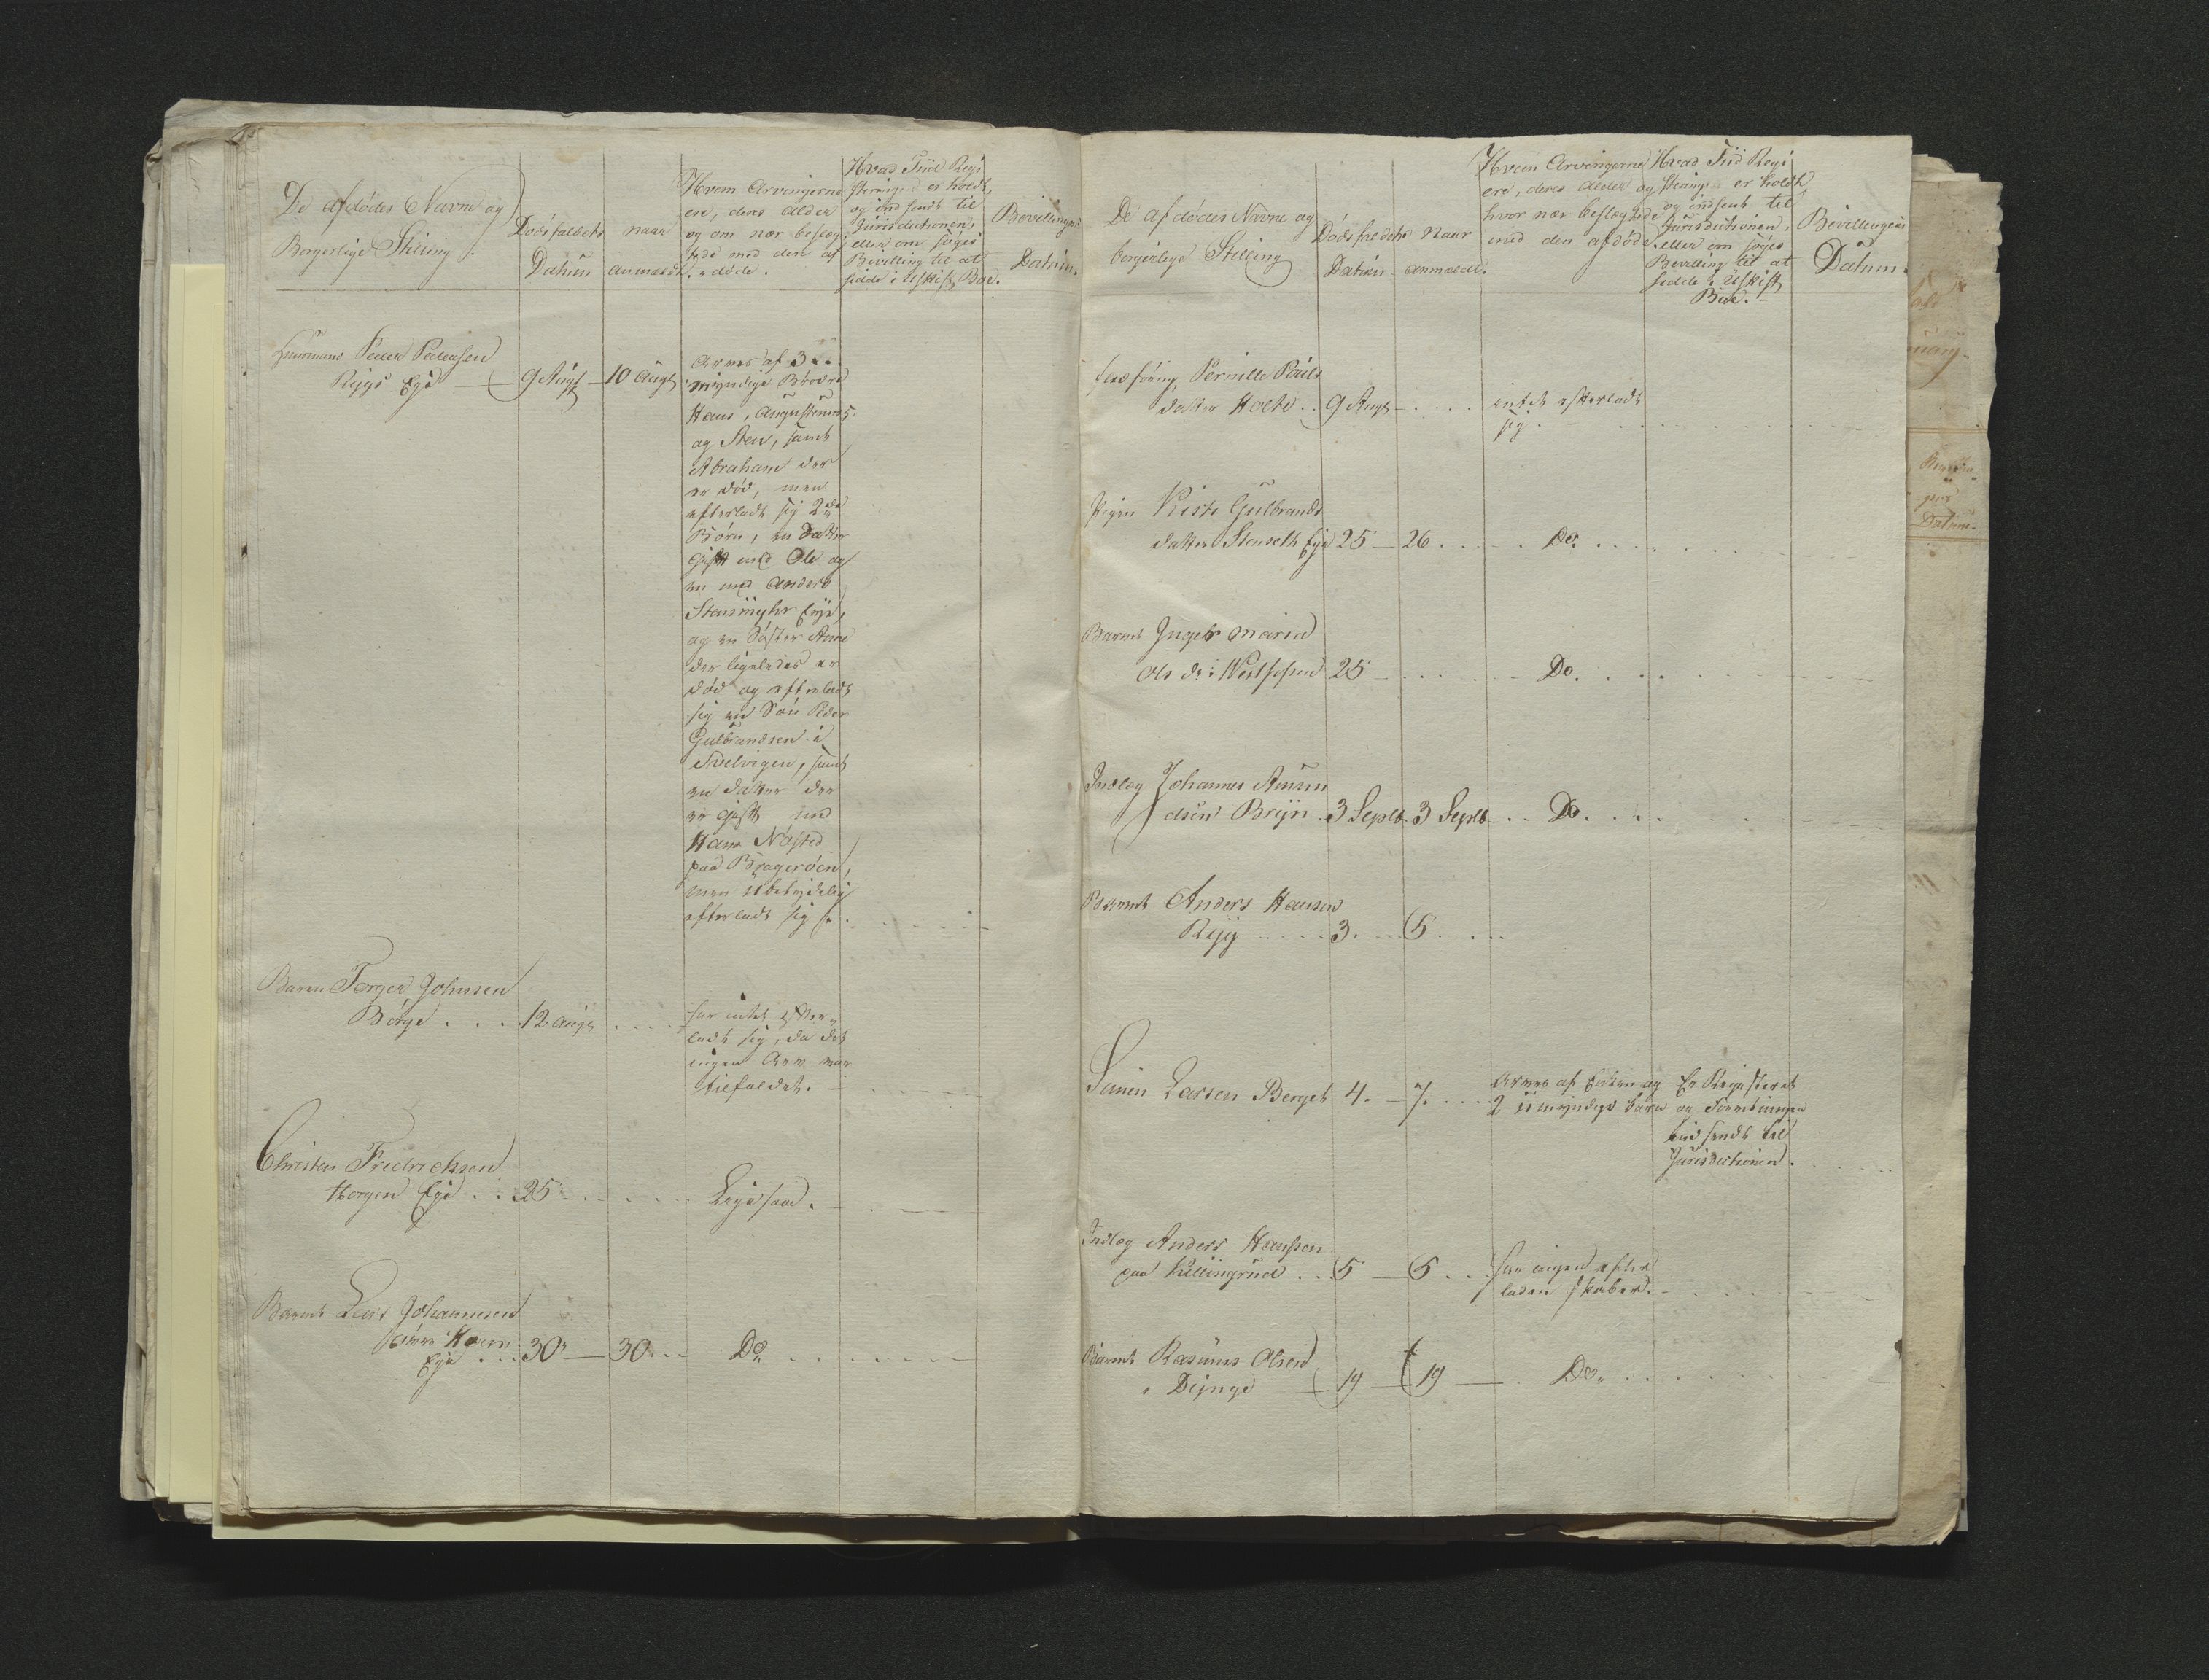 De afdödes Navne og
Borgerlige Stilling.
Dödsfaldets
Datum
naar
anmældt.
Hvem Arvingerne
ere, deres Alder
og om nær beslæg
tede med den af
döde.
Hvad Tiid Regi
steringen er holdt,
og indsendt til
Jurisdictionen,
eller om söges
Bevilling til at
sidde i Uskift. Boe.
Bevillingens
Datum.
Huusmand Peder Pedersen
Rygs Eje — 9 Augst — 10 Augst
Arves af 3
myndige Brödre
Hans,
og Sten, samt
Abraham der
er död, men
efterladt sig 2de
Börn, en Datter
gift med Ole og
en med Anders
Stensmyhr Eye,
og en Söster Anne
der ligeledes er
död og efterladt
sig en Sön Peder
Gulbrandsen i
Selvigen, samt
en datter der
er gift med
Hans Næsted
paa Brageröen,
men ubetydelig
efterladt sig
Barnet Torger Johnsen
Börge . . . 12 Augs . . . .
har intet efter„
ladt sig, da det
ingen Arv var
tilfaldet.
Christen Fredrichsen
Horgen Eje . . 25 - . . . . Ligesaa.
Barnet Lars Johannesen
Horn
Eje . . . 30 — 30 . . . Do
De afdödes Navne og
borgerlige Stilling
Dödsfaldets
Datum
Naar
anmældt.
Hvem Arvingerne
ere, deres Alder og
hvor nær beslægtede
med den afdöde.
Hvad Tiid Regi
steringen er holdt
og indsent til
Jurisdictionen,
eller om söges
Bevilling til at
sidde i Uskift
Boe.
Bevillingens
Datum.
Pernille Pouls
datter Holte . . 9 Augs - . . . . intet efterladt
sig.
Pigen Kisti Gulbrands
datter Stenseth Eje 25 — 26 . . . . Do.
Barnet Ingebr Maria
Ols dr i 25 - . . . . Do.
Indlæg Johannes Amun
dsen Bryn . 3 Septb. 3 Septb - . . Do.
Barnet Anders Hansen
Ryg . . . . . 3. — 6. . . .
Simen Larsen Berget 4. — 7. . . .
Arves af Enken og
2 umyndige barn
Er Registeret
og Forretningen
ind sendt til
Jurisdictionen.
Indlæg Anders Hanssen
paa Killingrud . . 5 — 6 . .
har ingen efter
ladenskaber.
Barnet Rasmus Olsen
i Dynge — 19 — 19 — . Do.